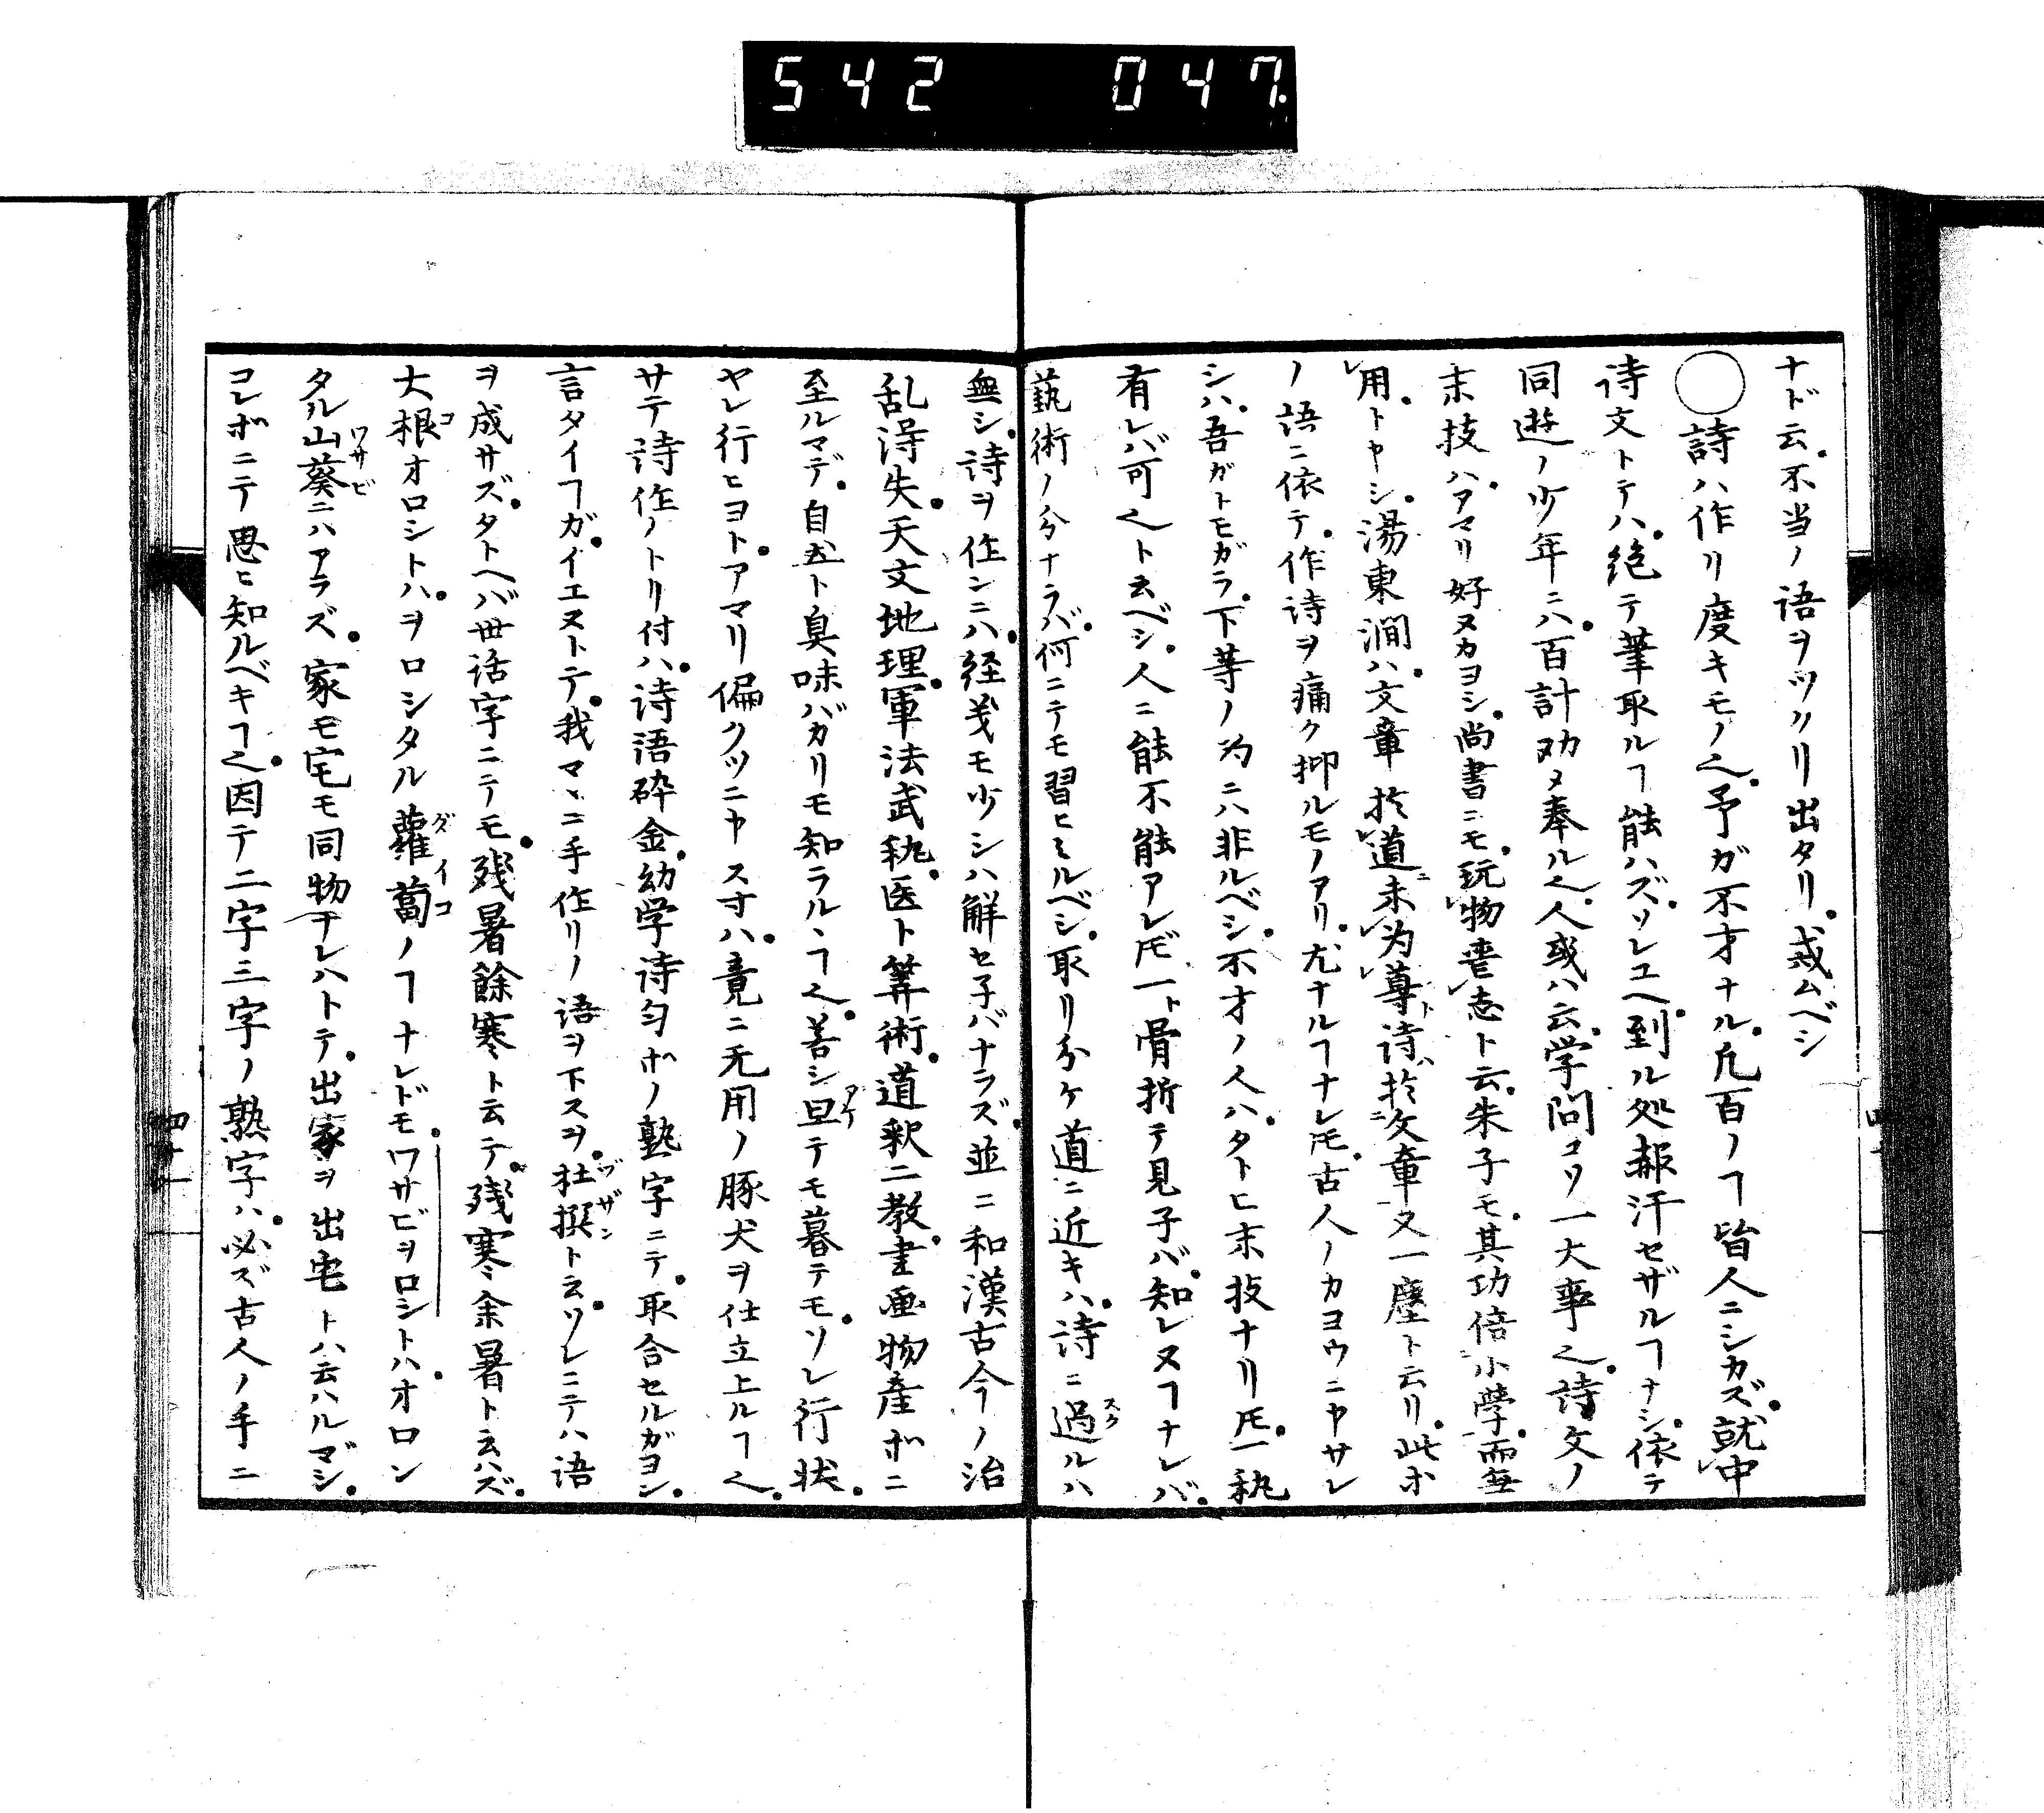 542 047.
ナド云。不当ノ語ヲツクリ出タリ。戒ムベシ
○詩ハ作リ度キモノ也。予ガ不才ナル。凡百ノヿ皆人ニシカズ。就中
詩文トテハ。絶テ筆取ルヿ能ハズ。ソレユヘ。到ル処赧汗セザルヿナシ。依テ
同遊ノ少年ニハ。百計勧メ奉ル也。人或ハ云。学問コソ一大事也。詩文ノ
末技ハ。アマリ好ヌカヨシ。尚書ニモ。玩物喪志ト云。朱子モ。其功倍小學。而無
用。トヤシ。湯東澗ハ。文章於道未為尊詩於文章又一塵ト云リ。此ホ
ノ語ニ依テ。作詩ヲ痛ク抑ルモノアリ。尤ナルヿナレ𪜈。古人ノカヨウニヤサレ
シハ。吾ガトモガラ。下等ノ为ニハ非ルベシ。不才ノ人ハ。タトヒ末技ナリ𪜈。一執
有レバ可也ト云ベシ。人ニ能不能アレ𪜈一ト骨折テ見子バ。知レヌヿナレバ。
藝術ノ分ナラバ。何ニテモ習ヒミルベシ。取リ分ケ道ニ近キハ。詩ニ過スクルハ
無シ。詩ヲ作ンニハ。経義モ少シハ解セ子バナラズ。並ニ和漢古今ノ治
乱淂失。天文地理。軍法武執。医ト筭術。道釈二教。書画物産ホニ
至ルマデ。自然ト臭味バカリモ知ラルヽヿ也。善シ旦アケテモ暮テモ。ソレ行状。
ヤレ行ヒヨト。アマリ偏クツニヤスオハ。竟ニ无用ノ豚犬ヲ仕立上ルヿ也。
サテ詩作ノトリ付ハ。詩語砕金。幼学詩匀ホノ熟字ニテ。取合セルガヨシ。
言タイヿガ。イエヌトテ。我マヽニ手作リノ語ヲ下スヲ。杜撰ヅザント云。ソレニテハ語
ヲ成サズ。タトヘバ丗話字ニテモ。残暑餘寒ト云テ。残寒余暑ト云ハズ。
大根コオロシトハ。ヲロシタル蘿蔔ダイコノヿナレドモ。ワサビヲロシトハ。オロシ
タル山葵ワサビニハアラズ。家モ宅モ同物ナレハトテ。出家ヲ出宅トハ云ハルマジ。
コレホニテ思ヒ知ルベキヿ也。因テ二字三字ノ熟字ハ。必ズ古人ノ手ニ